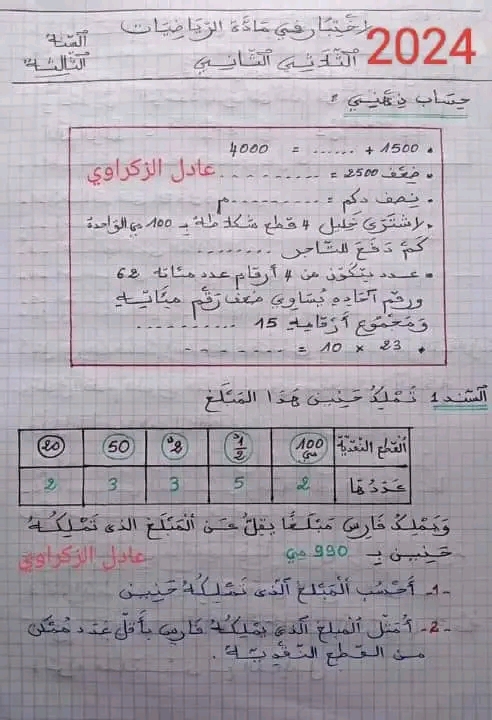 إختبار في مادة الرياضيات
السنة الثالثة
الثلاثي الثاني
2024
حساب ذهني :
• 1500 + ...... = 4000
• ضعف 2500 = .........
عادل الزكراوي
• نصف دكم = ......... م
• اشترى خليل 4 قطع شكلاطة بـ 100 مي الواحدة
كم دفع للتاجر ........
• عدد يتكون من 4 أرقام عدد مئاته 62
ورقم آحاده يساوي ضعف رقم مئاته
ومجموع أرقامه 15 .........
• 23 × 10 = ........
السند 1 تملك حنين هذا المبلغ
القطع النقدية 100 مي 1/2 د 2 د 50 20
عددها 2 5 3 3 2
ويملك فارس مبلغا يقل عن المبلغ الذي تملكه
حنين بـ 990 مي
عادل الزكراوي
-1- أحسب المبلغ الذي تملكه حنين
-2- أمثل المبلغ الذي يملكه فارس بأقل عدد ممكن
من القطع النقدية .